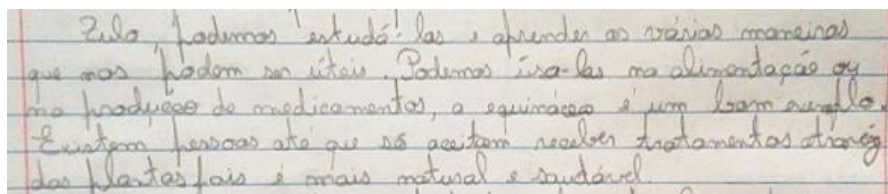 Zulo, podemos estudá-las e aprender as várias maneiras
que nos podem ser úteis. Podemos usa-las na alimentação ou
na produção de medicamentos, a equinácea é um bom
Existem pessoas até que só aceitam receber tratamentos através
das plantas pois é mais natural e saudável.